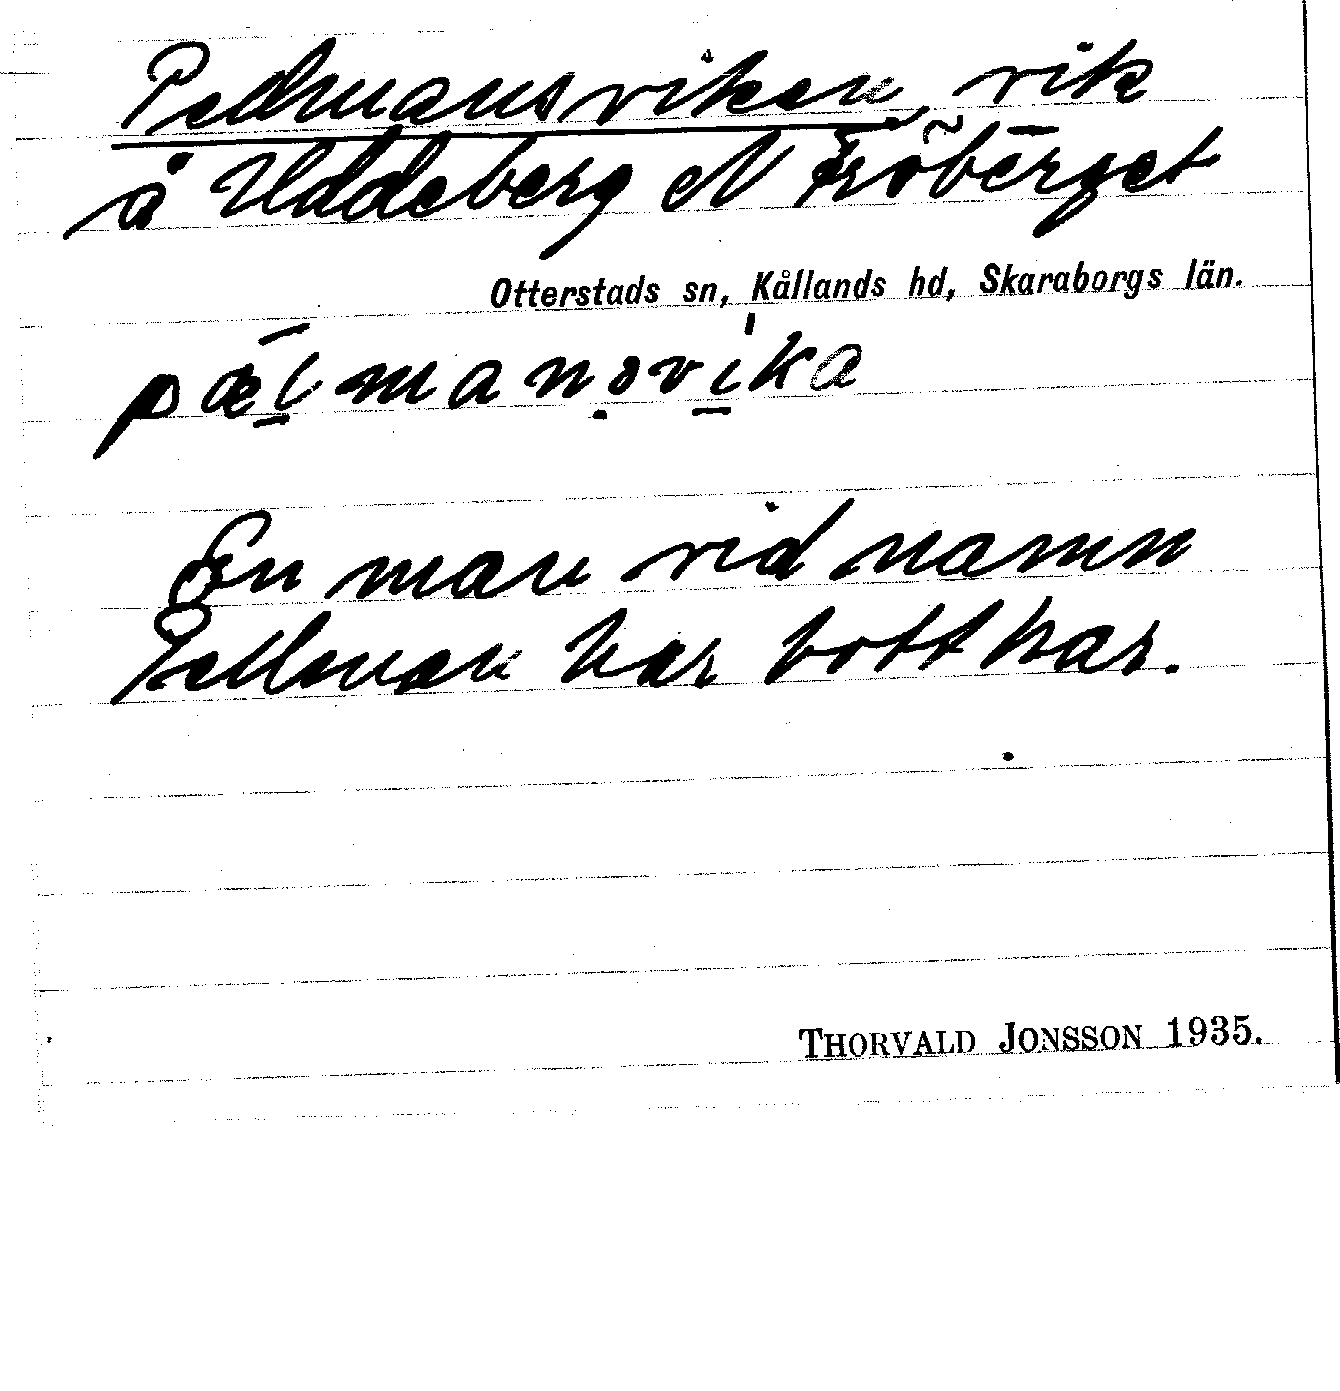 Pellmansviken, vik
å Uddeberg N Fröberget
Otterstads sn, Kållands hd, Skaraborgs län.
pælmansvika
En man vid namn
Pellman har bott här.
THORVALD JONSSON 1935.